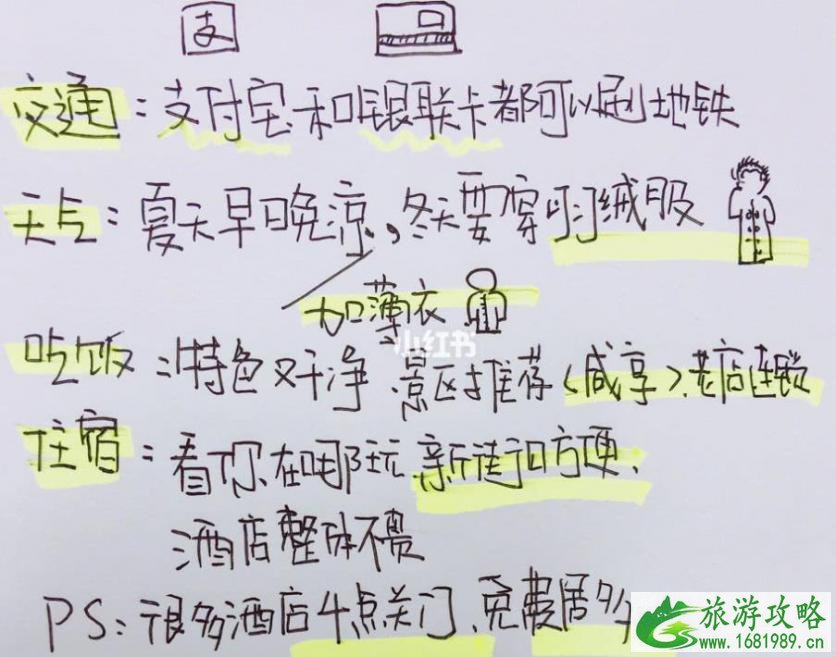 支
交通：支付宝和银联卡都可以刷地铁
天气：夏天早晚凉，冬天要穿羽绒服
加薄衣
小红书
吃饭：特色又干净 景区推荐（咸亨）、老店连锁
住宿：看你在哪玩，新街口方便、
酒店整体不贵
PS：很多酒店4点关门、免费居多
旅游攻略
www.1681989.cn